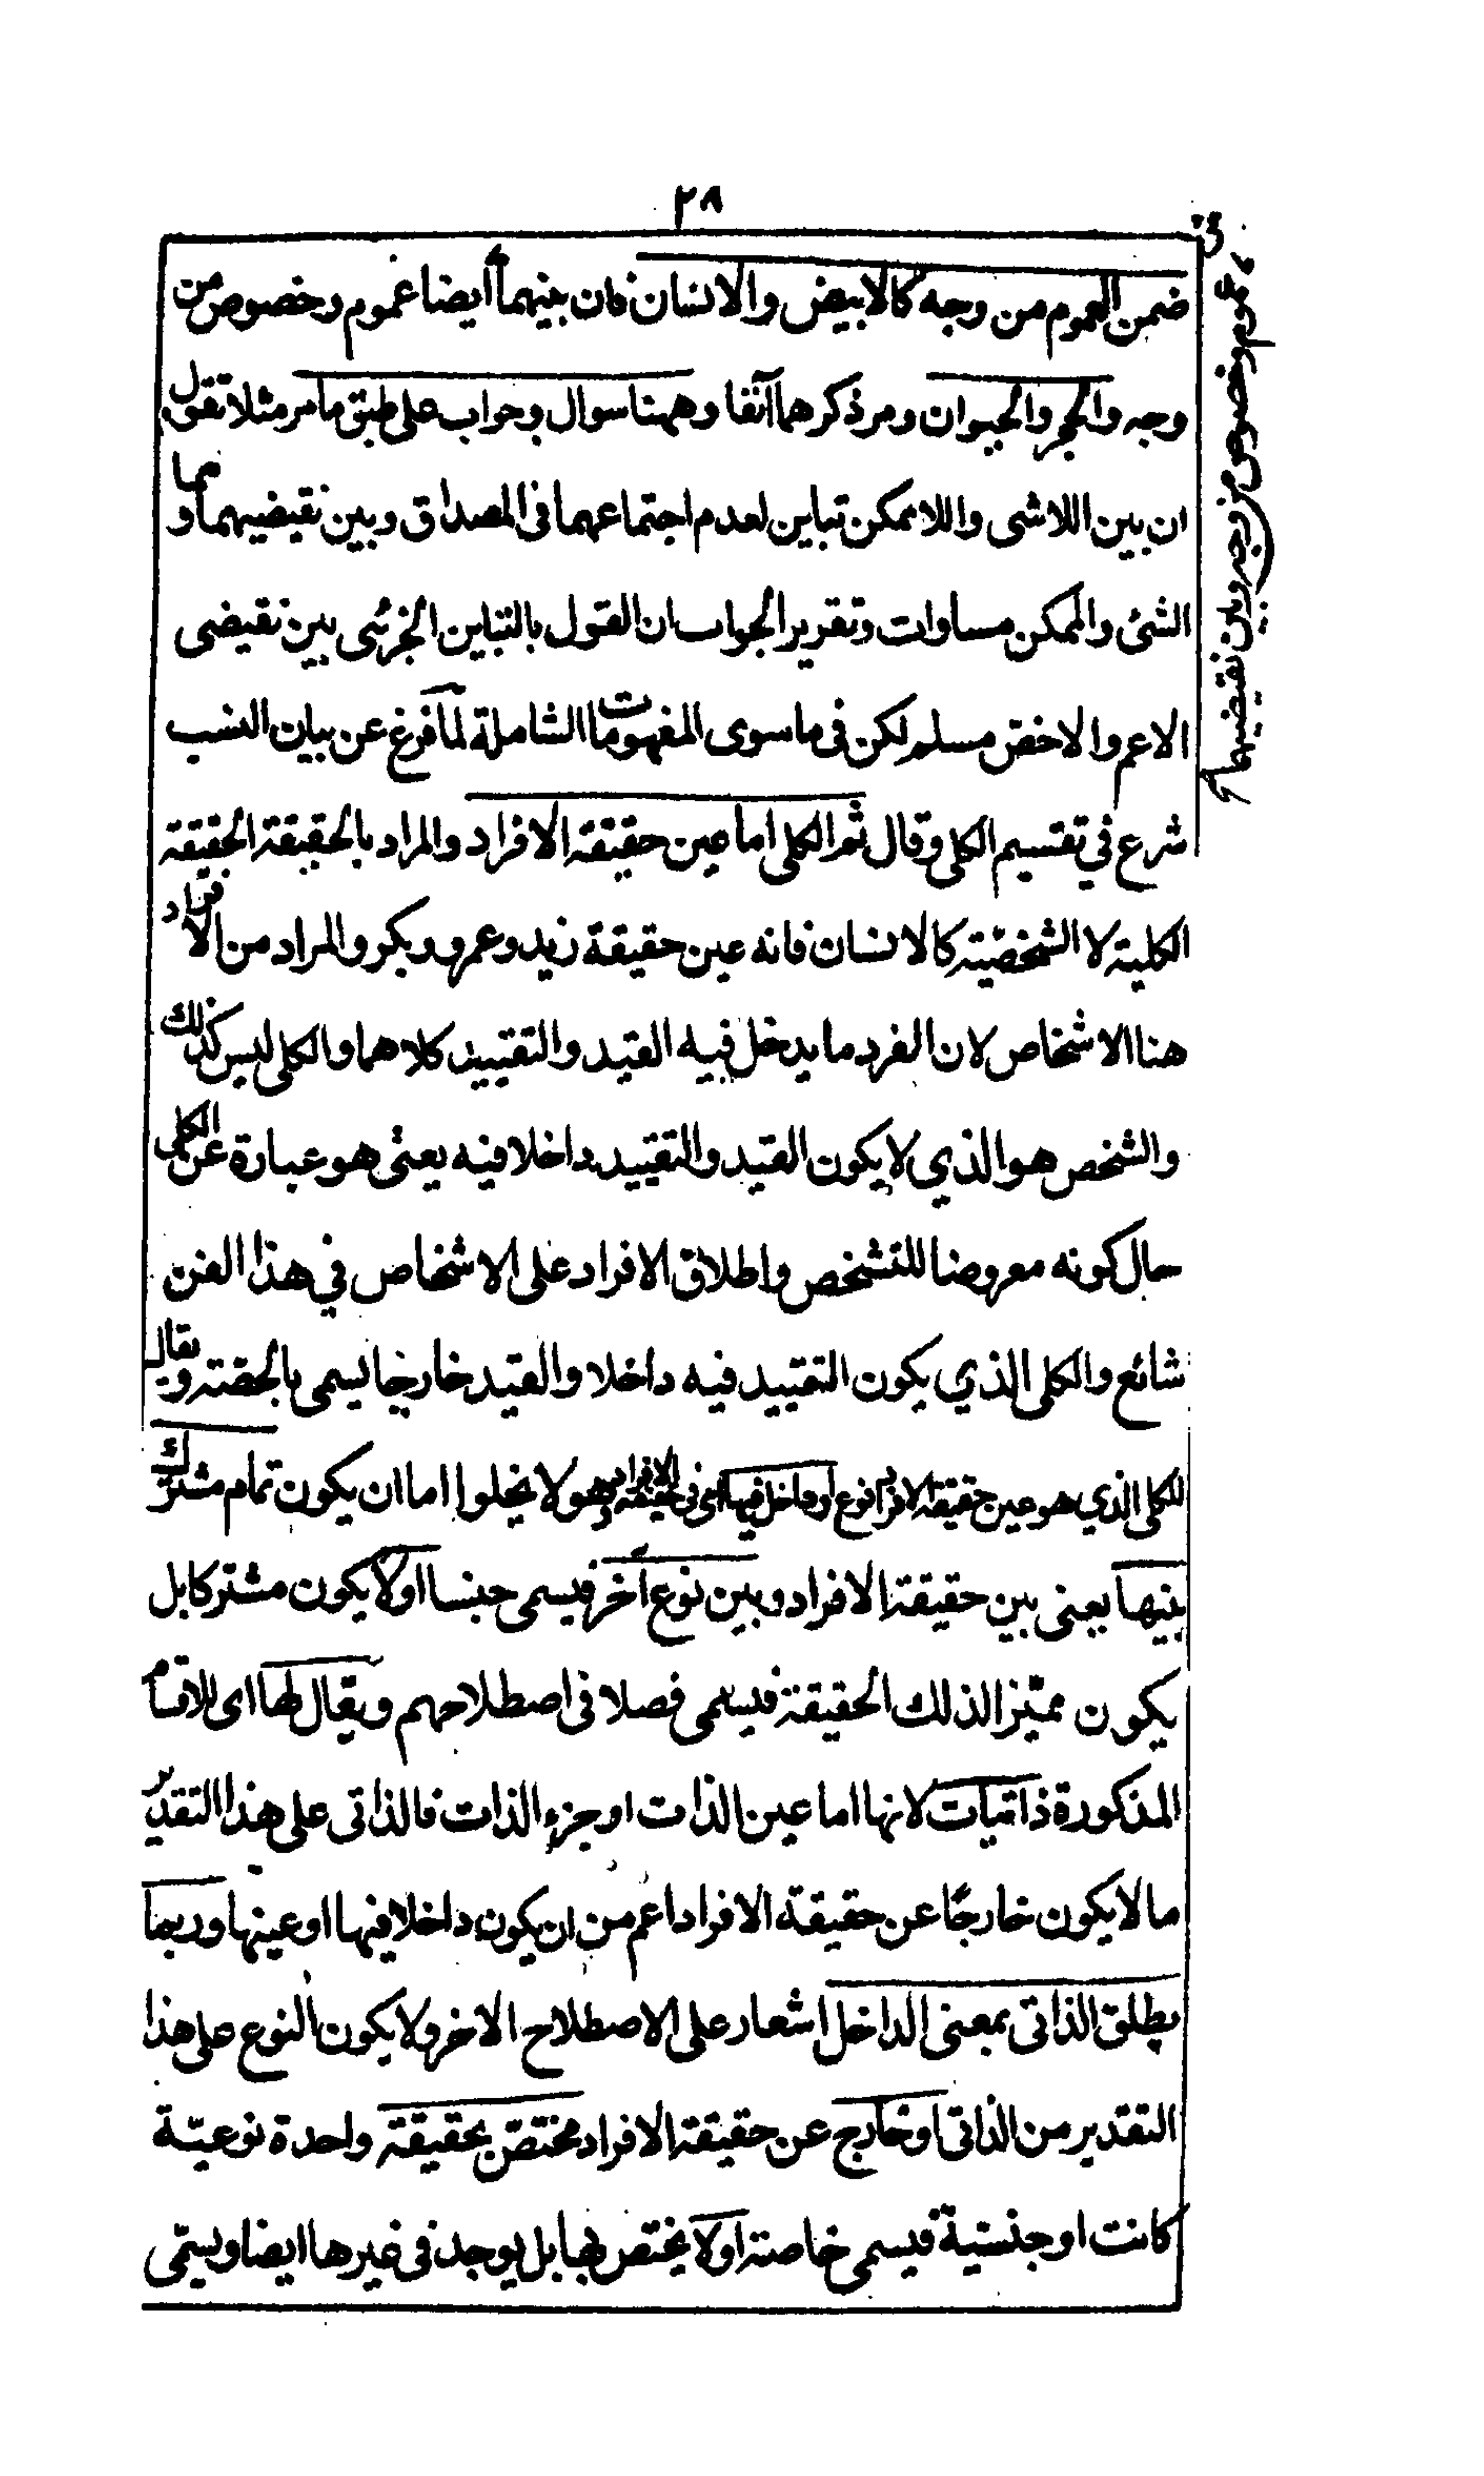 ٢٨
ضمن العموم من وجه كالابيض والانسان فان بينهما أيضا عموم وخصوص من
وجه والحجر والحيوان ومر ذكرهما آنفا وههنا سوال وجواب على طبق ما مر مثلا تقول
ان بين اللاشى واللاممكن تباين لعدم اجتماعهما فى المصداق وبين نقيضيهما وهما
الشئ والممكن مساوات وتقرير الجواب ان القول بالتباين الجزئى بين نقيضى
الاعم والاخص مسلم لكن فى ما سوى المفهومات الشاملة لما فرغ عن بيان النسب
شرع في تقسيم الكلى وقال ثم الكلى اما عين حقيقة الافراد والمراد بالحقيقة الحقيقة
الكلية لا الشخصية كالانسان فانه عين حقيقة زيد وعمرو وبكر والمراد من الافراد
هنا الاشخاص لان الفرد ما يدخل فيه القيد والتقييد كلاهما والكلى ليس كذلك
والشخص هو الذي لا يكون القيد والتقييد داخلا فيه يعنى هو عبارة عن الكلى
حال كونه معروضا للتشخص واطلاق الافراد على الاشخاص في هذا الفن
شائع والكلى الذي يكون التقييد فيه داخلا والقيد خارجا يسمى بالحصة ويقال
للكلى الذي هو عين حقيقة الافراد نوع او داخل فيها اى فى حقيقة الافراد وهو لا يخلوا اما ان يكون تمام مشترك
بينها يعنى بين حقيقة الافراد وبين نوع آخر فيسمى جنسا او لا يكون مشتركا بل
يكون مميزا لذلك الحقيقة فيسمى فصلا فى اصطلاحهم ويقال لها اى للاقسام
المذكورة ذاتيات لانها اما عين الذات او جزء الذات فالذاتى على هذا التقدير
ما لا يكون خارجًا عن حقيقة الافراد اعم من ان يكون داخلا فيها او عينها وربما
يطلق الذاتى بمعنى الداخل اشعار على الاصطلاح الاخر ولا يكون النوع على هذا
التقدير من الذاتى او خارج عن حقيقة الافراد مختصّ بحقيقة واحدة نوعيّة
كانت او جنسية فيسمى خاصة او لا يختص بها بل يوجد فى غيرها ايضا ويسمّى
عموم وخصوص من وجه وبين نقيضيهما